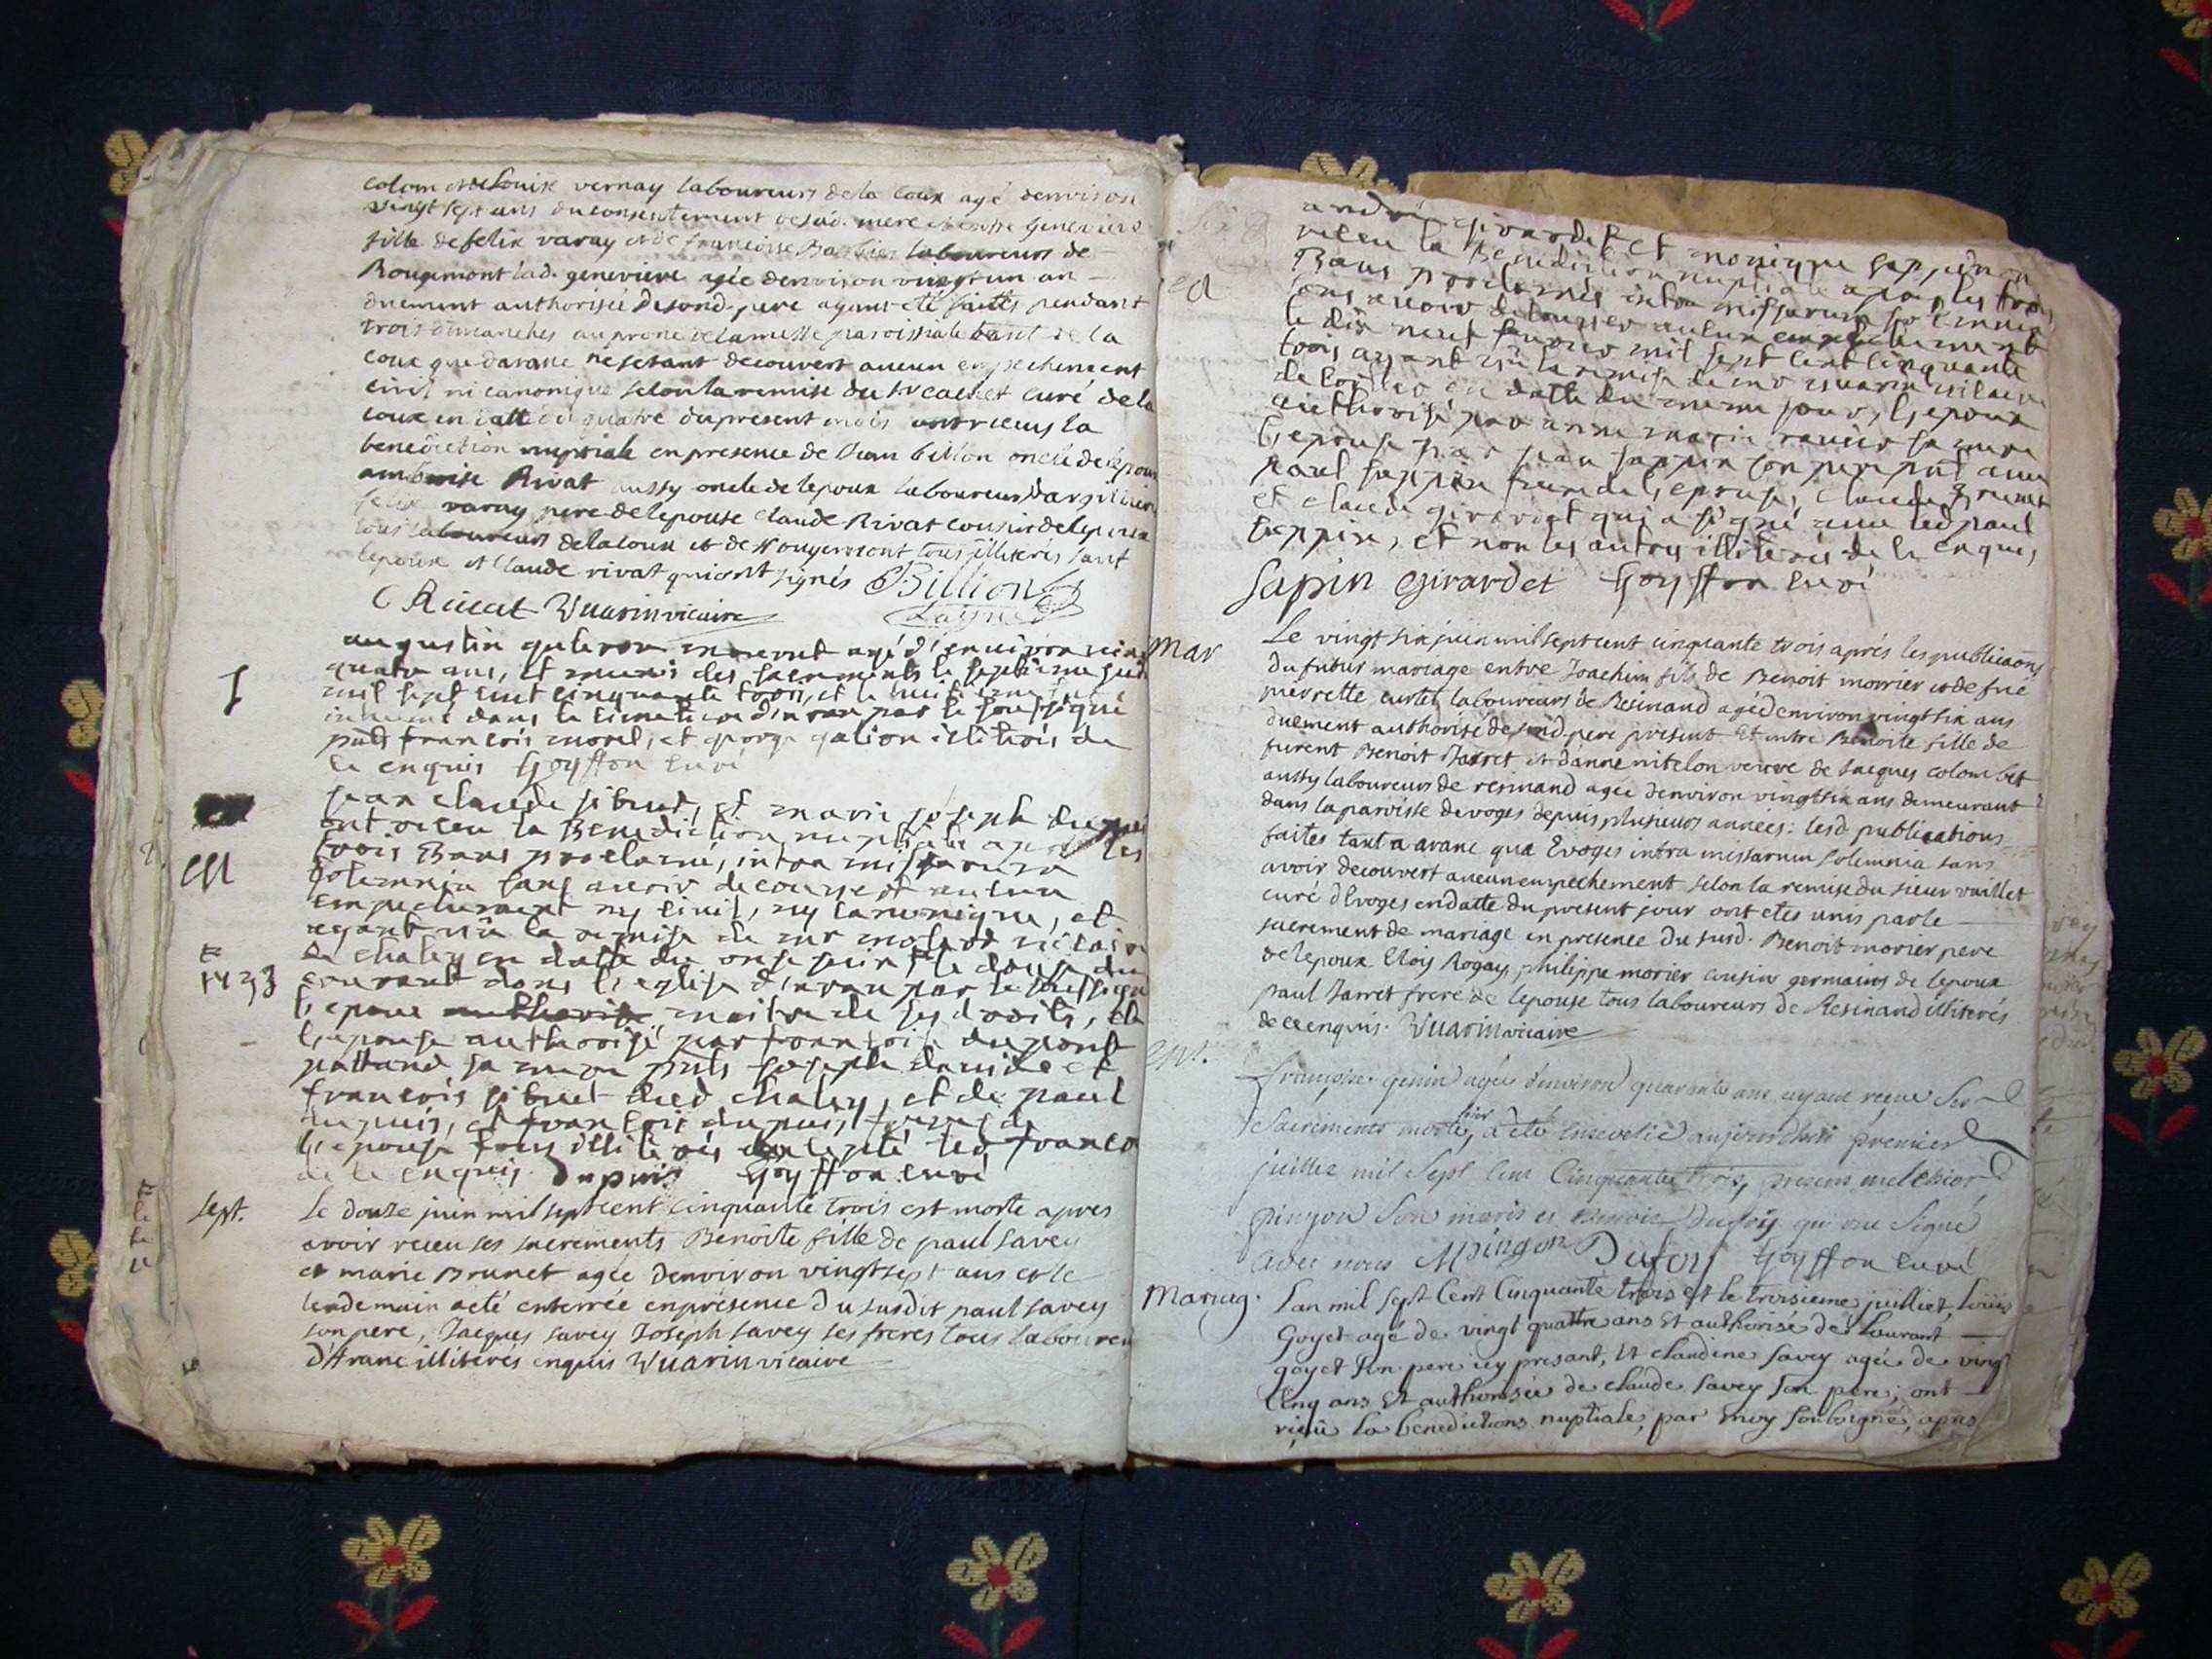 colom et de Louise vernay laboureurs de la Coux agé denviron
vingt sept ans du consentement de sad. mere et entre Genevieve
fille de felix varay et de francoise Barbier laboureurs de
Rougemont lad. genevieve agée denviron vingt un an
duement authorisée de sond. pere ayant eté faittes pendant
trois dimanches au prone de la messe paroissiale tant de la
coux que daranc ne setant decouvert aucun empechement
civil ni canonique selon la remise du Sr cachet curé de la
coux en datte du quatre du present mois ont receus la
benediction nuptiale en presence de Jean billion oncle de lepoux
ambroise Rivat aussy oncle de lepoux laboureurs
felix varay pere de lepouse Claude Rivat cousin de lepouse
tous laboureurs de la Coux et de Rougemont tous illiterés sauf
lepoux et Claude rivat qui ont signés Billion
C Rivat Vuarin vicaire
augustin agé d'environ
quatre ans, et muni des sacrements le septieme juin
mil sept cent cinquante trois, et le huitieme
inhumé dans le cimetiere d'aran par le soussigné
pnts francois morel, et george galion illiterés de
ce enquis Goyffon curé
jean claude sibuet, et marie joseph dupuis
ont receu la Benediction nuptiale apres les
trois Bans proclamé, intra missarum
solemnia sans avoir decouvert aucun
empechement ny civil, ny canonique, et
ayant vû la remise de mr vicaire
de chaley en datte du onze juin, le douze du
courant dans l'eglise d'aran par le soussigné
l'epoux maitre de ses droits, et
l'epouse authorisé par francoise dupont
sa mere pnts joseph et
francois sibuet dud chaley, et de paul
dupuis, et francois dupuis, freres de
l'epouse tous illiterés excepté led francois
de ce enquis. Dupuis Goyffon curé
Sept. Le douze juin mil sept cent cinquante trois est morte apres
avoir receu ses sacrements Benoite fille de paul Savey
et marie Brunet agée denviron vingt sept ans et le
lendemain a eté enterrée en présence du susdit paul savey
son pere, Jacques savey Joseph savey ses freres tous laboureurs
d'Aranc illiterés enquis Vuarin vicaire
andré girardet et monique sappin on
receu la Benediction nuptiale apres les trois
Bans proclamés intra missarum solemnia
sans avoir decouvert aucun empechement
le dix neuf fevrier mil sept cent cinquante
trois ayant vû la remise de mr vuarin vicaire
de en datte du meme jour, l'epoux
authorisé par anne marie sa mere
l'epouse par jean sappin son pere pnts
paul sappin frere de l'epouse, claude
et claude girardet qui a signé avec led paul
sappin, et non les autres illiterés de ce enquis
Sapin Girardet Goyffon curé
Mar Le vingt six juin mil sept cent cinquante trois aprés les publicaons
du futur mariage entre Joachim fils de Benoit morrier et de fue
pierrette curtet laboureurs de Resinand agé denviron vingt six ans
duement authorisé de sond. pere present Et entre Benoite fille de
furent Benoit Jarret et danne nitelon veuve de Jacques colombet
aussy laboureurs de resinand agée denviron vingt six ans demeurant
dans la paroisse devoges depuis plusieurs années: lesd. publications
faites tant a aranc qua Evoges intra missarum solemnia sans
avoir decouvert aucun empechement selon la remise du sieur vuillet
curé d'Evoges en datte du present jour ont etes unis par le
sacrement de mariage en presence du susd. Benoit morier pere
de lepoux Eloy Rogay, philippe morier cousins germains de lepoux
paul Jarret frere de lepouse tous laboureurs de Resinand illiterés
de ce enquis. Vuarin vicaire
Sept. Françoise genin agée denviron quarante ans ayant reçue ses
Sacrements morte hier, a eté ensevelie aujourdhui premier
juillet mil Sept Cent Cinquante trois, presens melchior
pingon Son maris et Benoit Dufoy qui ont Signé
avec nous MPingon Dufoy Goyffon curé
Mariag. Lan mil Sept Cent Cinquante trois et le troisieme juilliet, Loüis
Goyet agé de vingt quattre ans Et authorisé de Laurant
goyet Son pere icy presant, Et claudine Savey agée de vingt
Cinq ans Et authorisée de claude Savey Son pere; ont
riçû La benedictions nuptiale, par moy Soubsigné, apres